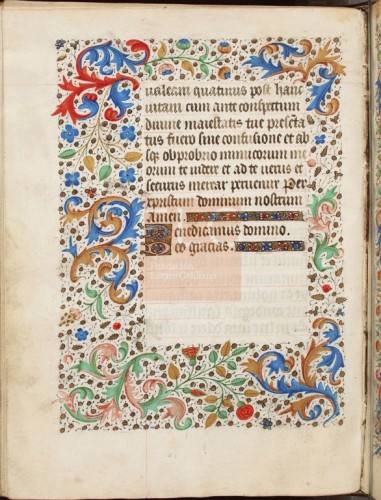 ualeam quaturus post hanc
uitam cum ante conspectum
diuine maiestatis tue presēta
tus fuero sine confusione et ab
sqȝ obprobrio inimicorum me
orum te uidere et ad te uenis et
securus merear peruenire Per
xpristum dominum nostrum
Amen.
Benedicamus domino.
Deo gracias.
Lázaro Galdiano